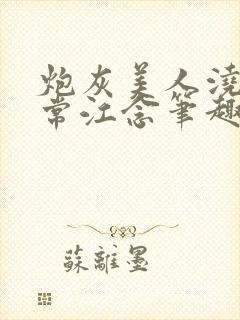 炮灰美人澆
常江念筆趣
蘇離墨